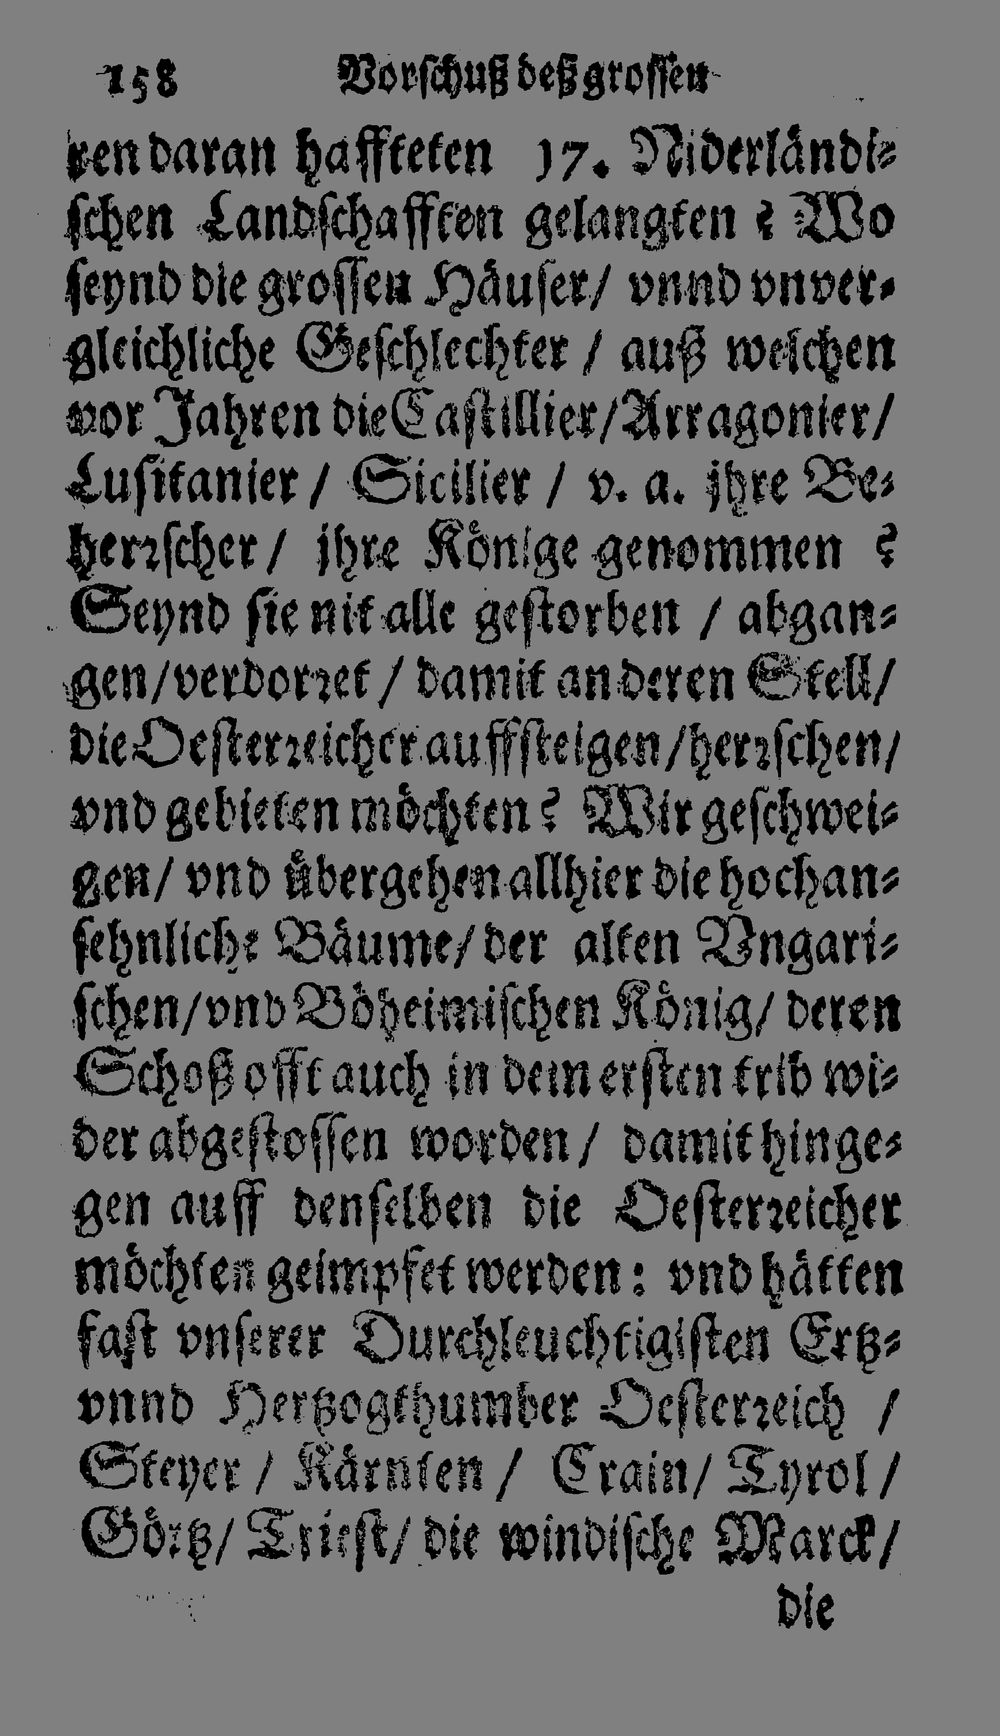 158 Vorschuß deß grossen
ren daran haffteten 17. Niderländi-
schen Landschafften gelangten? Wo
seynd die grossen Häuser/ vnnd vnver-
gleichliche Geschlechter / auß welchen
vor Jahren die Castillier/ Arragonier/
Lusitanier / Sicilier / v. a. jhre Be-
herrscher / jhre Könige genommen ?
Seynd sie nit alle gestorben / abgan-
gen/ verdorret / damit an deren Stell/
die Oesterreicher auffsteigen/ herrschen/
vnd gebieten möchten? Wir geschwei-
gen/ vnd übergehen allhier die hochan-
sehnliche Bäume/ der alten Vngari-
schen/ vnd Böheimischen König/ deren
Schoß offt auch in dem ersten trib wi-
der abgestossen worden / damit hinge-
gen auff denselben die Oesterreicher
möchten geimpfet werden: vnd hätten
fast vnserer Durchleuchtigisten Ertz-
vnnd Hertzogthumber Oesterreich /
Steyer / Kärnten / Crain/ Tyrol /
Görtz/ Triest/ die windische Marck/
die